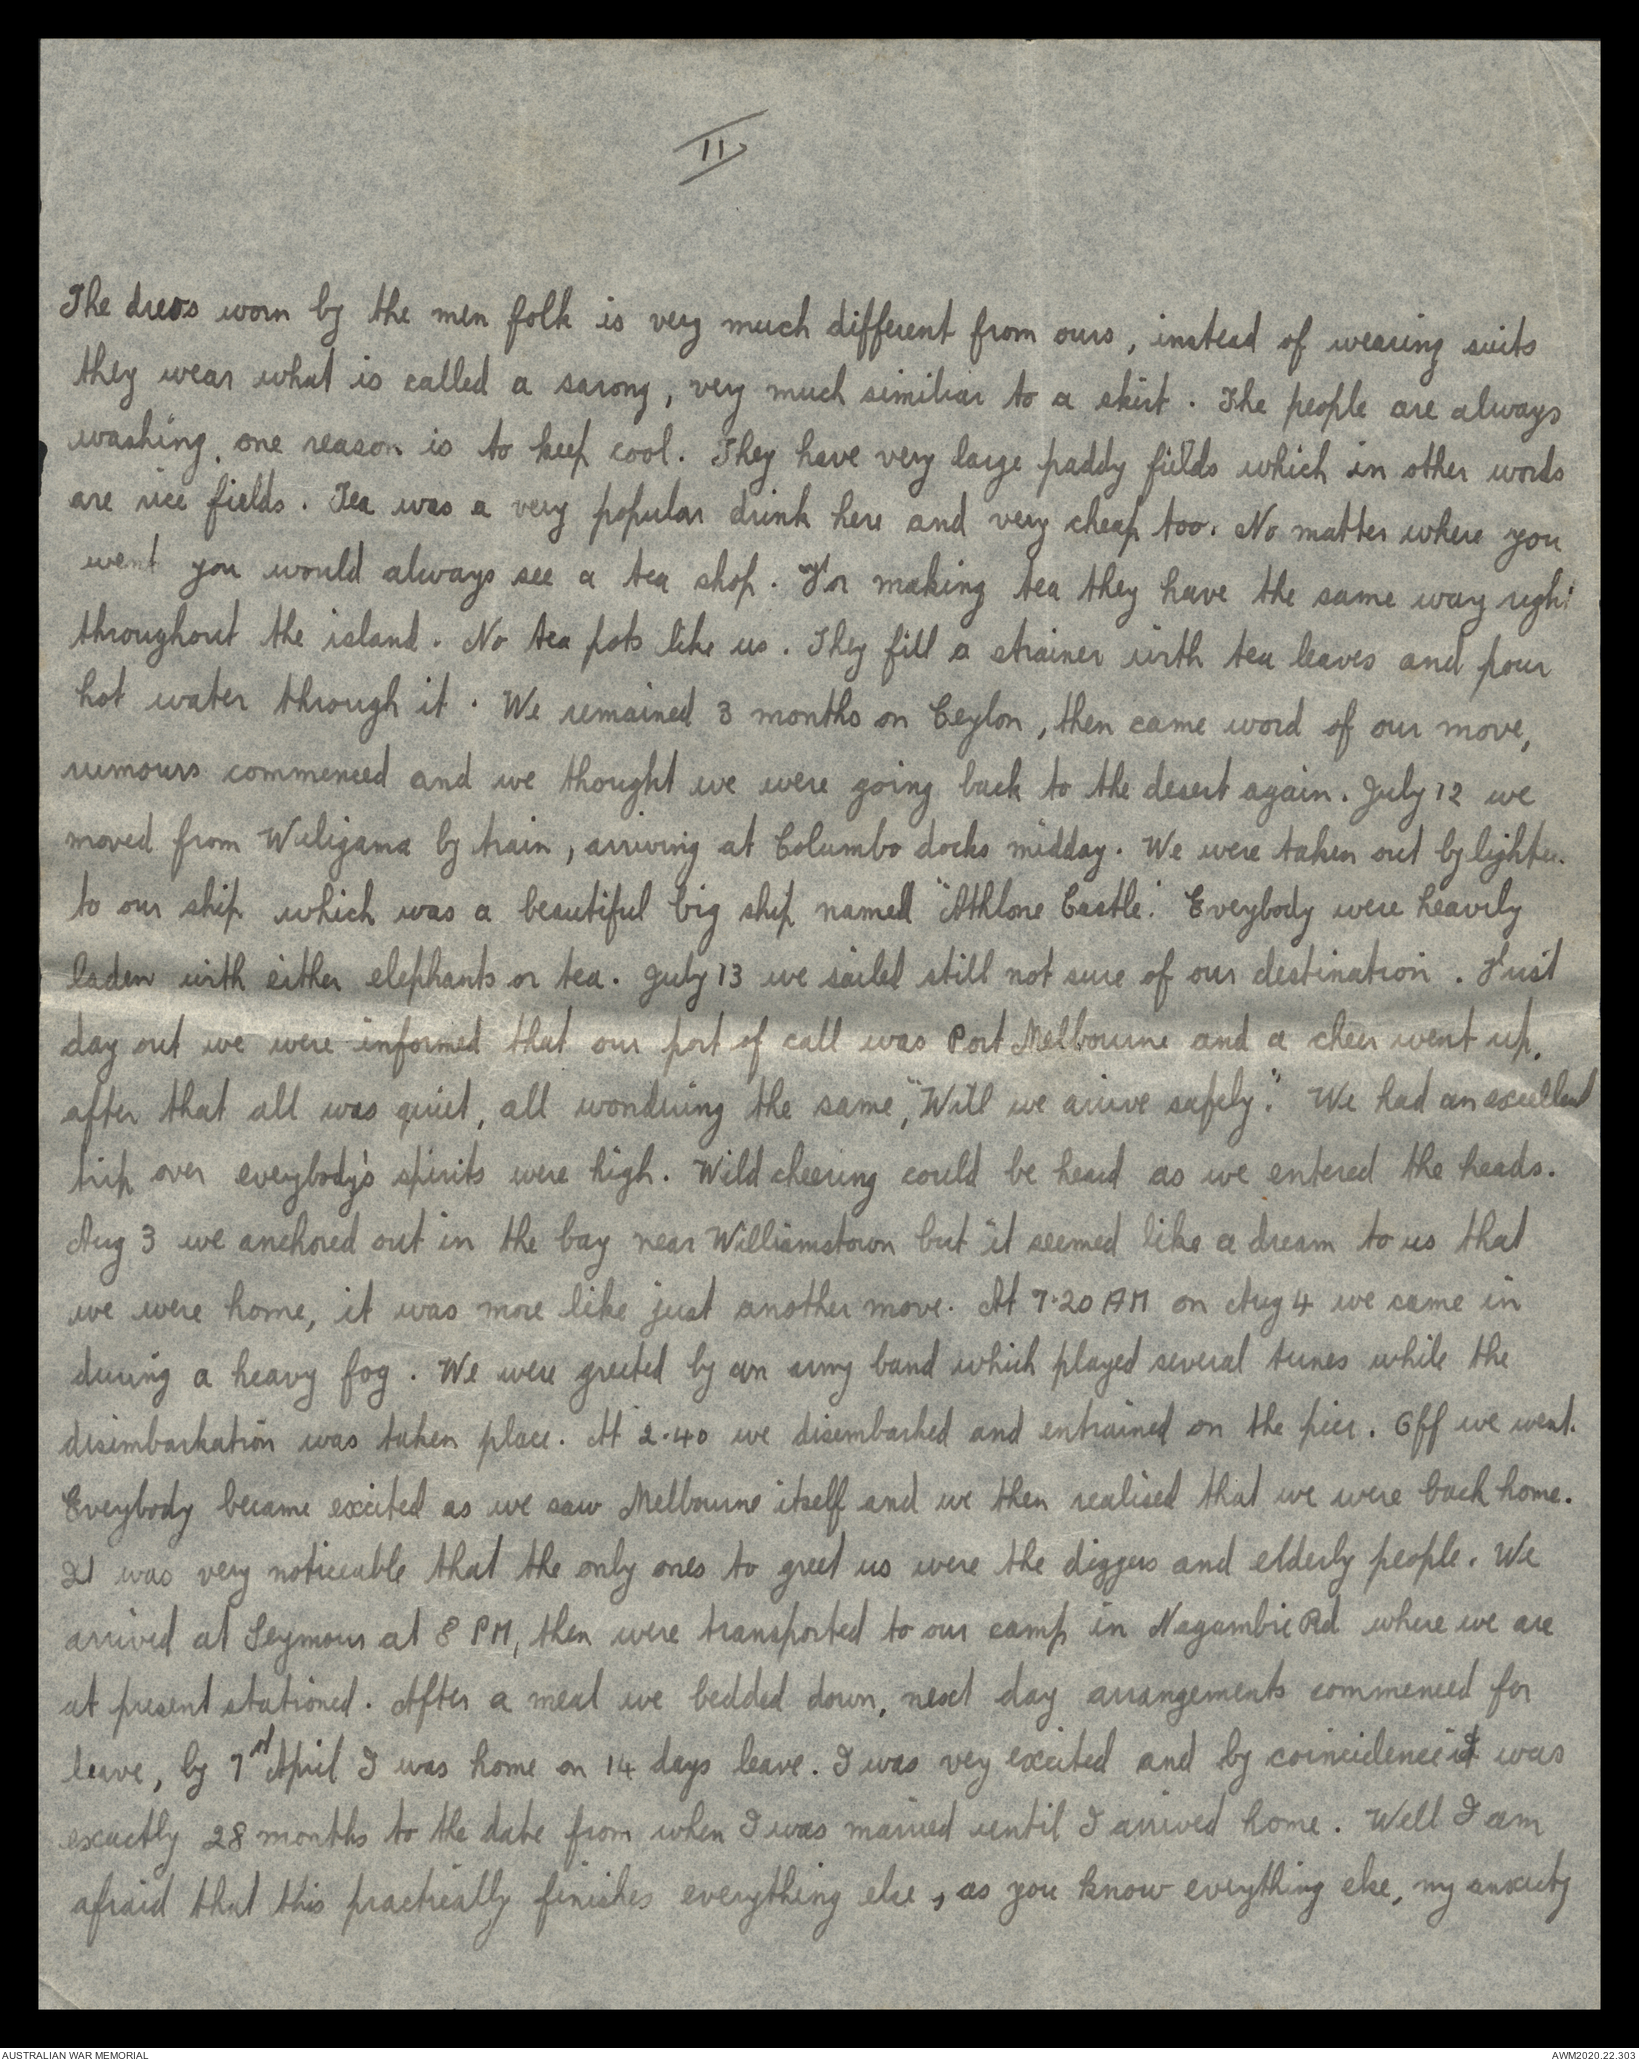 11
The dress worn by the men folk is very much different from ours, instead of wearing suits
they wear what is called a sarong, very much similiar to a skirt. The people are always
washing, one reason is to keep cool. They have very large paddy fields which in other words
are rice fields. Tea was a very popular drink here and very cheap too. No matter where you
went you would always see a tea shop. For making tea they have the same way right
throughout the island. No tea pots like us. They fill a strainer with tea leaves and pour
hot water through it. We remained 3 months on Ceylon, then came word of our move,
rumours commenced and we thought we were going back to the desert again. July 12 we
moved from Wuligama by train, arriving at Columbo docks midday. We were taken out by lighter
to our ship which was a beautiful big ship named "Athlone Castle." Everybody were heavily
laden with either elephants or tea. July 13 we sailed still not sure of our destination. First
day out we were informed that our port of call was Port Melbourne and a cheer went up,
after that all was quiet, all wondering the same, "Will we arrive safely." We had an excellent
trip over everybody's spirits were high. Wild cheering could be heard as we entered the heads.
Aug 3 we anchored out in the bay near Williamstown but it seemed like a dream to us that
we were home, it was more like just another move. At 7.20 AM on Aug 4 we came in
during a heavy fog. We were greeted by an army band which played several tunes while the
disimbarkation was taken place. At 2.40 we disembarked and entrained on the pier. Off we went.
Everybody became excited as we saw Melbourne itself and we then realised that we were back home.
It was very noticeable that the only ones to greet us were the diggers and elderly people. We
arrived at Seymour at 8 PM, then were transported to our camp in Nagambie Rd where we are
at present stationed. After a meal we bedded down, next day arrangements commenced for
leave, by 7 April I was home on 14 days leave. I was very excited and by coincidence it was
exactly 28 months to the date from when I was married until I arrived home. Well I am
afraid that this practically finishes everything else, as you know everything else, my anxiety
AUSTRALIAN WAR MEMORIAL
AWM2020.22.303